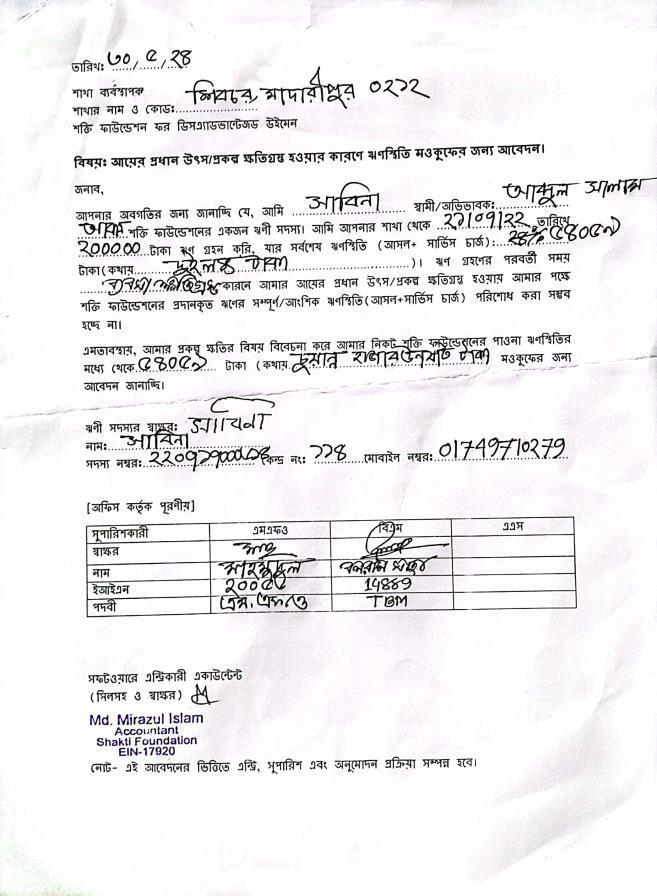 তারিখ: ৩০, ৫, ২৪
শাখা ব্যবস্থাপক
শাখার নাম ও কোড: শিবচর, মাদারীপুর ০২১২
শক্তি ফাউন্ডেশন ফর ডিসএ্যাডভান্টেজড উইমেন
বিষয়: আয়ের প্রধান উৎস/প্রকল্প ক্ষতিগ্রস্ত হওয়ার কারণে ঋণস্থিতি মওকুফের জন্য আবেদন।
জনাব,
আপনার অবগতির জন্য জানাচ্ছি যে, আমি সাবিনা স্বামী/অভিভাবক: আব্দুল সালাম
শক্তি ফাউন্ডেশনের একজন ঋণী সদস্য। আমি আপনার শাখা থেকে তারিখে
200000 টাকা ঋণ গ্রহন করি, যার সর্বশেষ ঋণস্থিতি (আসল+ সার্ভিস চার্জ):
টাকা(কথায় দুই লক্ষ টাকা )। ঋণ গ্রহণের পরবর্তী সময়
কারনে আমার আয়ের প্রধান উৎস/প্রকল্প ক্ষতিগ্রস্ত হওয়ায় আমার পক্ষে
শক্তি ফাউন্ডেশনের প্রদানকৃত ঋণের সম্পূর্ণ/আংশিক ঋণস্থিতি(আসল+সার্ভিস চার্জ) পরিশোধ করা সম্ভব
হচ্ছে না।
এমতাবস্থায়, আমার প্রকল্প ক্ষতির বিষয় বিবেচনা করে আমার নিকট শক্তি ফাউন্ডেশনের পাওনা ঋণস্থিতির
মধ্যে থেকে টাকা (কথায় হাজার টাকা মওকুফের জন্য
আবেদন জানাচ্ছি।
ঋণী সদস্যর স্বাক্ষর: সাবিনা
নাম: সাবিনা
সদস্য নম্বর: কেন্দ্র নং: ১১৪ মোবাইল নম্বর: 01749710279
[অফিস কর্তৃক পূরণীয়]
সুপারিশকারী এমএফও বিএম এএস
স্বাক্ষর
নাম
ইআইএন 14889
পদবী TBM
সফটওয়ারে এন্ট্রিকারী একাউন্টেন্ট
(সিলসহ ও স্বাক্ষর)
Md. Mirazul Islam
Accountant
Shakti Foundation
EIN-17920
নোট- এই আবেদনের ভিত্তিতে এন্ট্রি, সুপারিশ এবং অনুমোদন প্রক্রিয়া সম্পন্ন হবে।